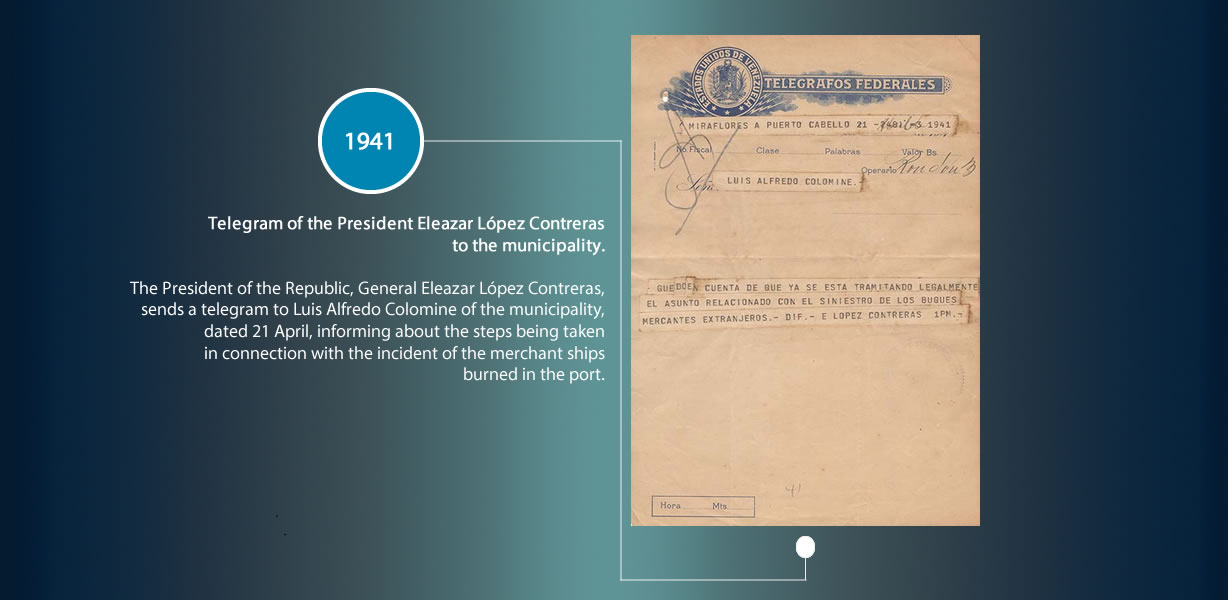 1941
Telegram of the President Eleazar López Contreras
to the municipality.
The President of the Republic, General Eleazar López Contreras,
sends a telegram to Luis Alfredo Colomine of the municipality,
dated 21 April, informing about the steps being taken
in connection with the incident of the merchant ships
burned in the port.
ESTADOS UNIDOS DE VENEZUELA
TELEGRAFOS FEDERALES
MIRAFLORES A PUERTO CABELLO 21 - 1941
No Fiscal Clase Palabras Valor Bs.
Operario
Señor LUIS ALFREDO COLOMINE.-
CUENTA DE QUE YA SE ESTA TRAMITANDO LEGALMENTE
EL ASUNTO RELACIONADO CON EL SINIESTRO DE LOS BUQUES
MERCANTES EXTRANJEROS.- DIF.- E LOPEZ CONTRERAS 1PM.-
41
Hora Mts.